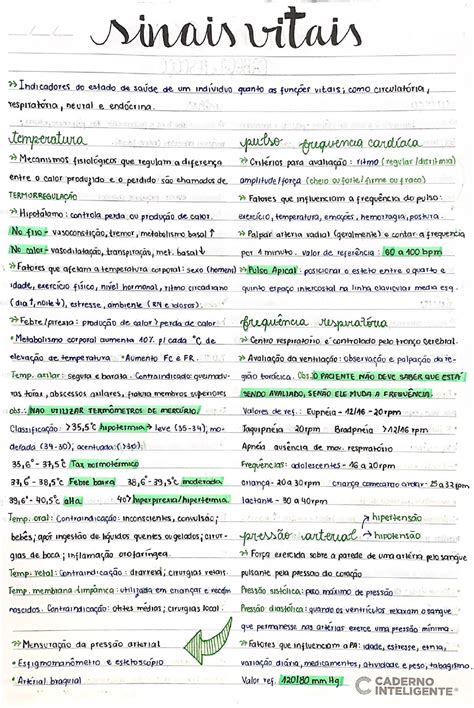 sinais vitais
>> Indicadores do estado de saúde de um indivíduo quanto as funções vitais; como circulatória,
respiratória, neural e endócrina.
temperatura
>> Mecanismos fisiológicos que regulam a diferença
entre o calor produzido e o perdido são chamados de
TERMORREGULAÇÃO
>> Hipotálamo: controla perda ou produção de calor.
No frio - vasoconstrição, tremor, metabolismo basal ↑
No calor - vasodilatação, transpiração, met. basal ↓
>> Fatores que afetam a temperatura corporal: sexo (homem)
idade, exercício físico, nível hormonal, ritmo circadiano
(dia ↑, noite ↓), estresse, ambiente (RN e idosos).
>> Febre/pirexia: produção de calor > perda de calor
• Metabolismo corporal aumenta 10% p/ cada °C de
elevação de temperatura • Aumento FC e FR.
Temp. axilar: segura e barata. Contraindicação: queimadu-
ras tórax, abscessos axilares, fratura membros superiores
obs.: NÃO UTILIZAR TERMÔMETROS DE MERCÚRIO.
Classificação: > 35,5°C hipotermia → leve (35-34); mo-
derada (34-30); acentuada (>30);
35,6° - 37,5°C Tax normotérmico
37,8° - 38,5°C Febre baixa 38,6° - 39,5°C moderada
39,6° - 40,5°C alta 40° hiperpirexia/hipertermia.
Temp. oral: Contraindicação: inconscientes, convulsão;
bebês; após ingestão de líquidos quentes ou gelados; cirur-
gias de boca; inflamação orofaríngea.
Temp. retal: Contraindicação: diarreia; cirurgias retais.
Temp. membrana timpânica: utilizada em crianças e recém
nascidos. Contraindicação: otites médias; cirurgias local.
>> Mensuração da pressão arterial
• Esfigmomanômetro e estetoscópio
• Artérial braquial
pulso frequência cardíaca
>> Critérios para avaliação: ritmo (regular/disritmia)
amplitude/força (cheio ou forte/firme ou fraco)
>> Fatores que influenciam a frequência do pulso:
exercício, temperatura, emoções, hemorragia, postura.
>> Palpar artéria radial (geralmente) e contar a frequência
por 1 minuto. valor de referência: 60 a 100 bpm
>> Pulso Apical: posicionar o esteto entre o quarto e
quinto espaço intercostal na linha clavicular media esq.
frequência respiratória
>> Centro respiratório é controlado pelo tronco cerebral.
>> Avaliação da ventilação: observação e palpação da re-
gião torácica. Obs.: O PACIENTE NÃO DEVE SABER QUE ESTÁ
SENDO AVALIADO, SENÃO ELE MUDA A FREQUÊNCIA.
Valores de ref.: Eupnéia - 12/16 - 20rpm
Taquipnéia > 20rpm Bradpnéia > 12/16rpm
Apnéia ausência de mov. respiratório
Frequências: adolescentes - 16 a 20 rpm
criança 20 a 30 rpm criança começando andar - 25 a 32 rpm
lactante - 30 a 40rpm
→ hipertensão
pressão arterial → hipotensão
>> Força exercida sobre a parede de uma artéria pelo sangue
pulsante pela pressão do coração
Pressão sistólica: pico máximo de pressão
Pressão diastólica: quando os ventrículos relaxam o sangue
que permanesse nas artérias exerce uma pressão mínima.
>> Fatores que influenciam a PA: idade, estresse, etnia,
variação diária, medicamentos, atividade e peso, tabagismo.
Valor ref. 120/80 mmHg
CADERNO
INTELIGENTE®